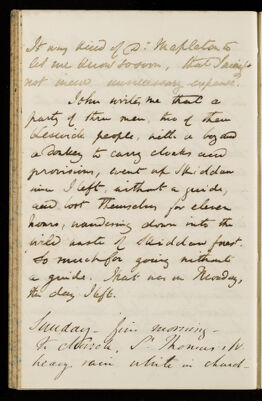 It was kind of Dr. Mapleton to
let me know so soon, that I might
not incur unnecessary expense.
John writes me that a
party of three men, two of them
Keswick people, with a boy and
a donkey to carry cloaks and
provisions, went up Skiddaw
since I left, without a guide,
and lost themselves for eleven
hours, wandering down into the
wild waste of Skiddaw forest.
So much for going without
a guide. That was on Monday,
the day I left.
Sunday - fine morning -
to church, St. Thomas's
heavy rain while in church -